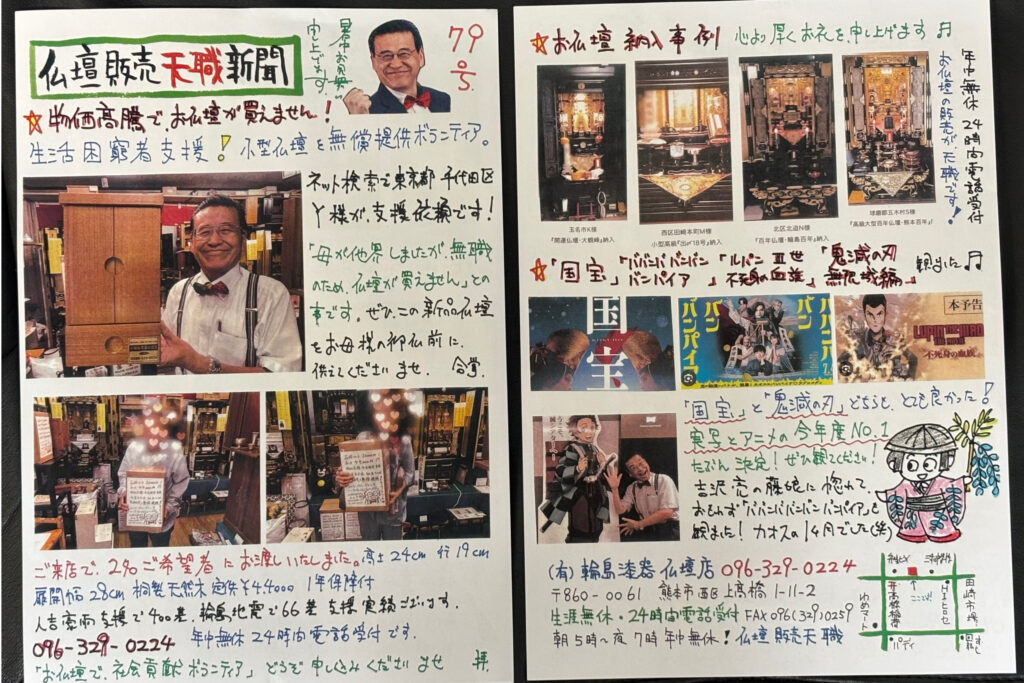 仏壇販売天職新聞
暑中お見舞
申上げます。
79号
☆物価高騰で、お仏壇が買えません!
生活困窮者支援!小型仏壇を無償提供ボランティア。
ネット検索で東京都千代田区
Y様が、支援依頼です!
「母が他界しましたが、無職
のため、仏壇が買えません」との
事です。ぜひ、この新品仏壇
をお母様の御仏前に、
供えてくださいませ。合掌。
ご来店で、2名ご希望者にお渡しいたしました。高さ24cm 行19cm
扉開幅28cm 桐製天然木 定価¥44000 1年保障付
人吉豪雨支援で400基、輪島地震で66基支援実績ございます。
096-329-0224 年中無休24時間電話受付です。
「お仏壇で、社会貢献ボランティア」どうぞ申し込みくださいませ 拝.
☆お仏壇納入事例 心より厚くお礼を申し上げます♬
年中無休24時間電話受付
お仏壇の販売が天職です!
玉名市K様
『開運仏壇・大鶴峰』納入
西区田崎本町M様
小型高級『出〆18号』納入
北区北迫N様
『百年仏壇・輪島百年』納入
球磨郡五木村S様
『高級大型百年仏壇・熊本百年』納入
☆「国宝」「ババンババンバンバンパイア」「ルパン三世 不死身の血族」「鬼滅の刃 無限城編」観ました♬
国宝
ババンババンバンバンパイア
本予告
LUPIN THE IIIRD
THE MOVIE
不死身の血族
「国宝」と「鬼滅の刃」どちらも、とても良かった!
実写とアニメの今年度No.1
たぶん決定!ぜひ観てください!
吉沢亮の藤娘に惚れて
おもわず"ババンババンバンバンパイア"も
観ました!カオスの1ヶ月でした(笑)
(有)輪島漆器仏壇店 096-329-0224
〒860-0061 熊本市西区上高橋1-11-2
生涯無休・24時間電話受付 FAX 096(329)0259
朝5時〜夜7時 年中無休!仏壇販売天職
ここです!
ゆめマート
ヒロセ
田崎市場